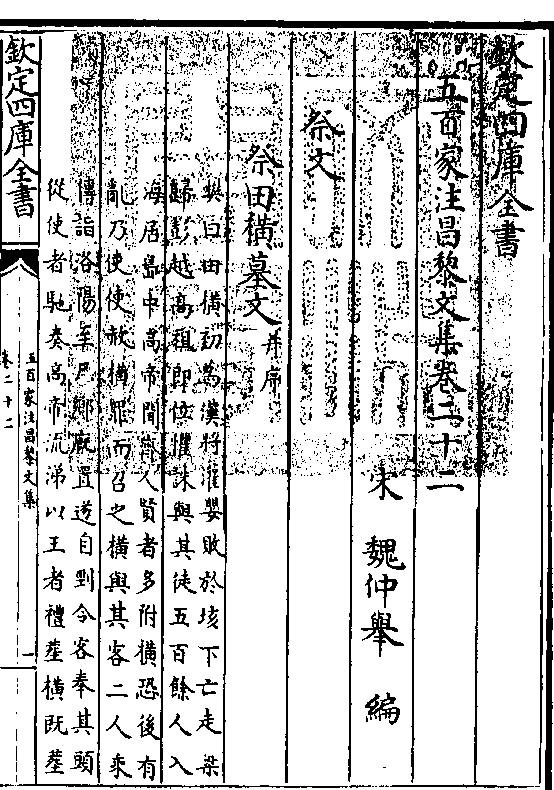 欽定四庫全書
五百家注昌黎文集卷二十二
宋 魏仲舉 編
祭文
祭田横墓文并序
樊曰田横初為漢將灌嬰敗於垓下亡走梁
歸彭越高祖即位懼誅與其徒五百餘人入
海居島中高帝聞齊人賢者多附横恐後有
亂乃使使赦横罪而召之横與其客二人乘
傳詣洛陽至尸鄉廐置遂自剄令客奉其頭
從使者馳奏高帝流涕以王者禮塟横既塟
欽定四庫全書
五百家注昌黎文集
卷二十二
一